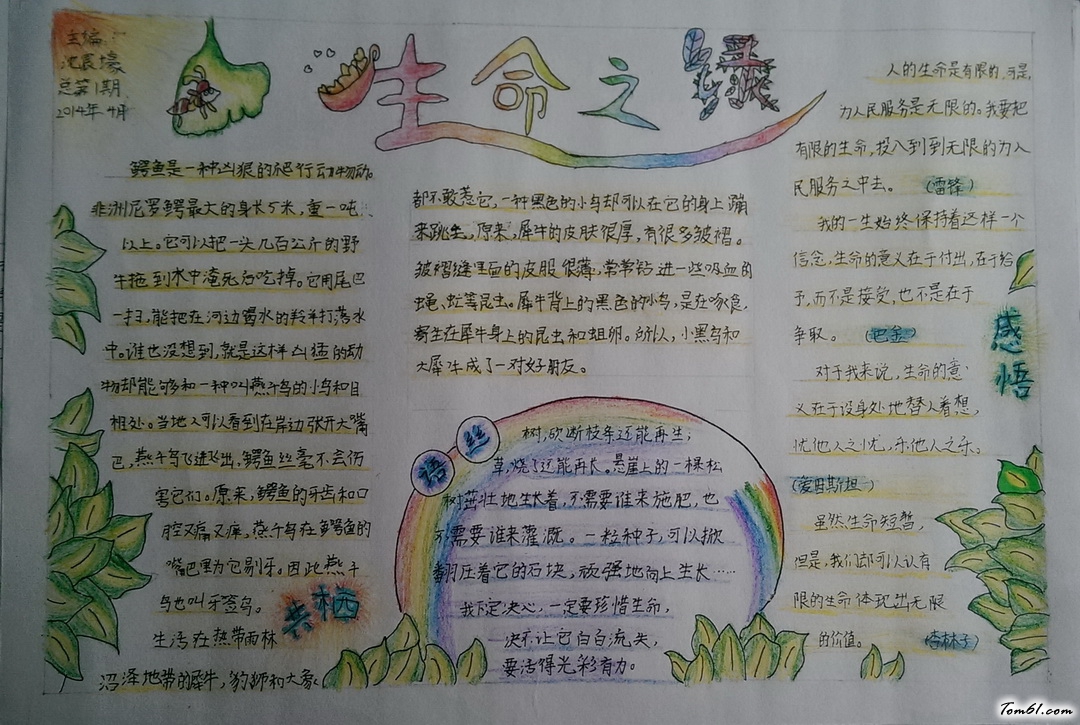 主编：
沈良壕
总第1期
2014年4月
生命之
鳄鱼是一种凶狠的爬行动物。
非洲尼罗鳄最大的身长5米，重一吨
以上。它可以把一头几百公斤的野
牛拖到水中淹死后吃掉。它用尾巴
一扫，能把在河边喝水的羚羊打落水
中。谁也没想到，就是这样凶猛的动
物却能够和一种叫燕千鸟的小鸟和目
相处。当地人可以看到在岸边张开大嘴
巴，燕千鸟飞进飞出，鳄鱼丝毫不会伤
害它们。原来，鳄鱼的牙齿和口
腔又痛又痒，燕千鸟在鳄鱼的
嘴巴里为它剔牙。因此燕千
鸟也叫牙签鸟。
共栖
生活在热带雨林
沼泽地带的犀牛，豹狮和大象
都不敢惹它，一种黑色的小鸟却可以在它的身上蹦
来跳去。原来，犀牛的皮肤很厚，有很多皱褶。
皱褶缝里面的皮服很薄，常常钻进一些吸血的
蝇、虻等昆虫。犀牛背上的黑色的小鸟，是在啄食
寄生在犀牛身上的昆虫和蛆卵。所以，小黑鸟和
大犀牛成了一对好朋友。
语丝
树，砍断枝条还能再生；
草，烧了还能再长。悬崖上的一棵松
树茁壮地生长着，不需要谁来施肥，也
不需要谁来灌溉。一粒种子，可以掀
翻压着它的石块，顽强地向上生长……
我下定决心，一定要珍惜生命，
决不让它白白流失，
要活得光彩有力。
人的生命是有限的，可是，
为人民服务是无限的。我要把
有限的生命，投入到到无限的为人
民服务之中去。（雷锋）
我的一生始终保持着这样一个
信念，生命的意义在于付出，在于给
予，而不是接受，也不是在于
争取。（巴金）
感悟
对于我来说，生命的意
义在于设身处地替人着想，
忧他人之忧，乐他人之乐。
（爱因斯坦）
虽然生命短暂，
但是，我们却可以让有
限的生命体现出无限
的价值。（杏林子）
Tom61.com